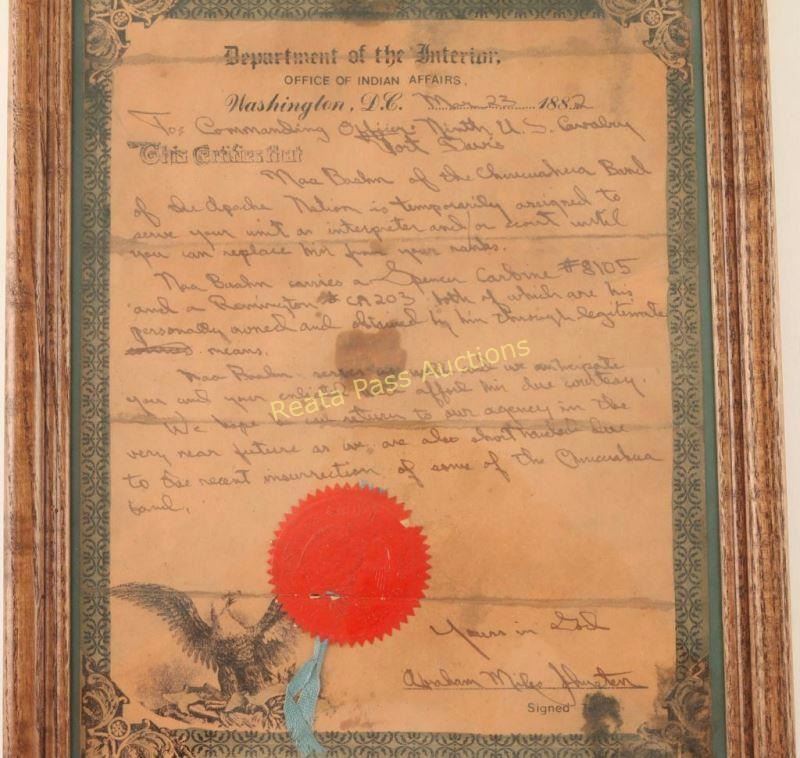 Department of the Interior,
OFFICE OF INDIAN AFFAIRS,
Washington, D.C. Mar 23 1882
To: Commanding Officer Ninth U.S. Cavalry
Fort Davis
This Certifies that
Naa Baahn of the Chiricahua Band
of the Apache Nation is temporarily assigned to
serve your unit as interpreter and/or scout until
you can replace him from your ranks.
Naa Baahn carries a Spencer Carbine #8105
and a Remington # CA203 both of which are his
personally owned and obtained by him through legitimate
means.
Naa Baahn we anticipate
you and your afford him due courtesy.
We hope return to our agency in the
very near future as we are also short handed due
to the recent insurrection of some of the Chiricahua
band.
Reata Pass Auctions
Yours in God
Abraham Miles
Signed